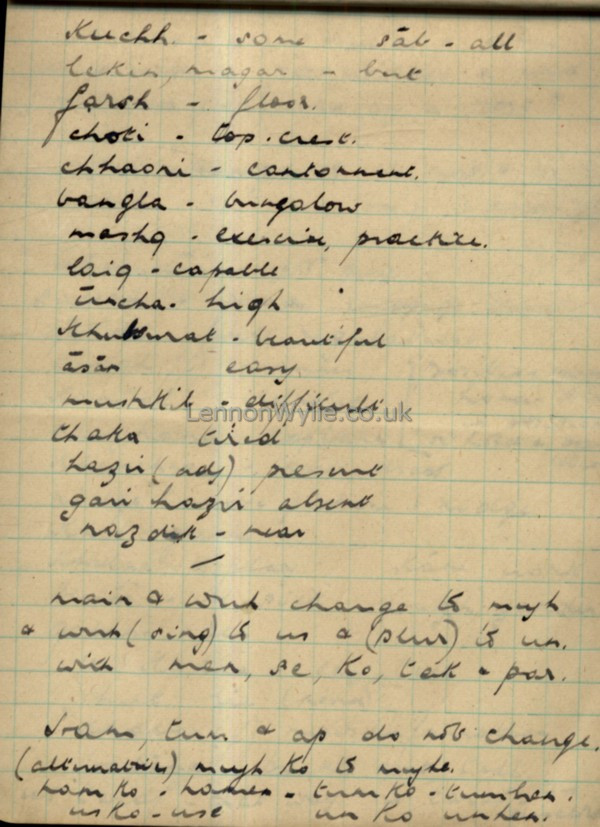 Kuchh. - some    sāb - all
lekin, magar - but
farsh - floor.
choti - top. crest.
chhaoni - cantonment.
bangla - bungalow
mashq - exercise, practice.
laiq - capable
ūncha - high
Khubsurat - beautiful
āsān    easy
mushkil - difficult
LennonWylie.co.uk
thaka    tired
hazir (adj) present
gair hazir absent
nazdik - near
main & wuh change to mujh
& wuh (sing) to us & (plur) to un.
with men, se, ko, tak & par.
ham, tum & ap do not change.
(alternatives) mujh ko to mujhe.
ham ko - hamen - tum ko - tumhen.
us ko - use    un ko unhen.